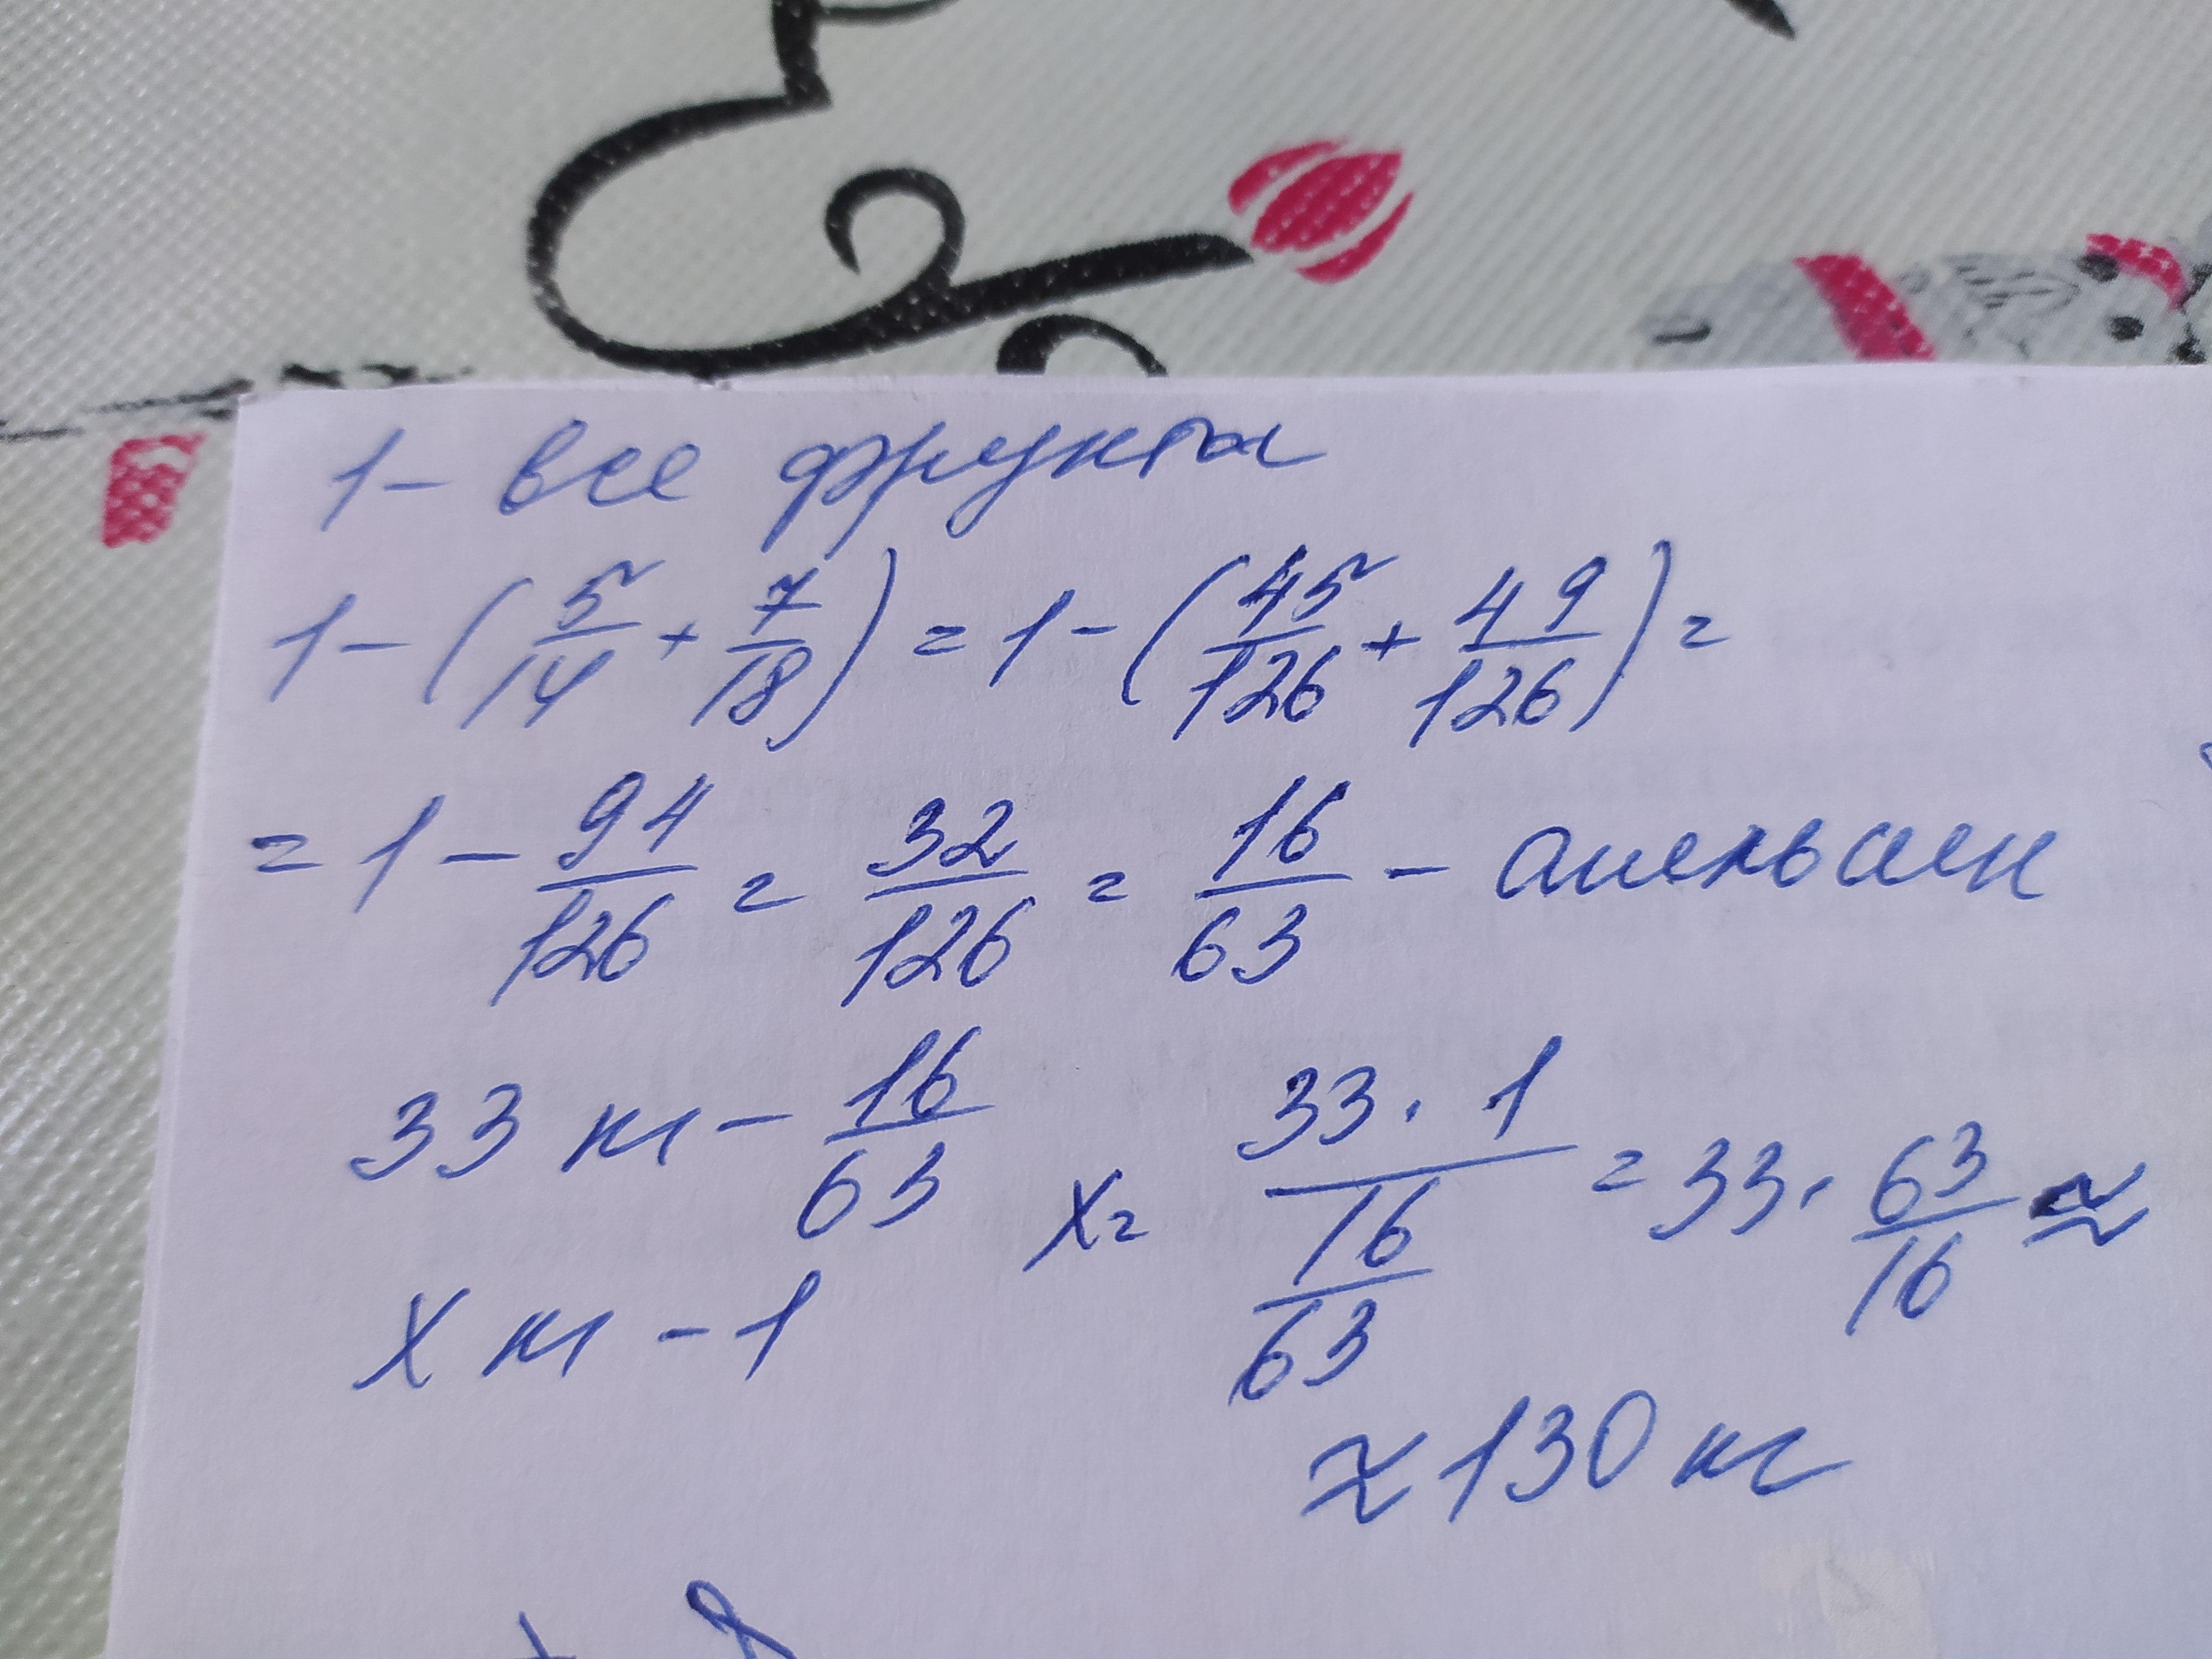 1 - все фрукты
1 - (5/14 + 7/18) = 1 - (45/126 + 49/126) =
= 1 - 94/126 = 32/126 = 16/63 - апельсин
33 кг - 16/63
x кг - 1
x = 33 · 1 / (16/63) = 33 · 63/16 ≈
≈ 130 кг